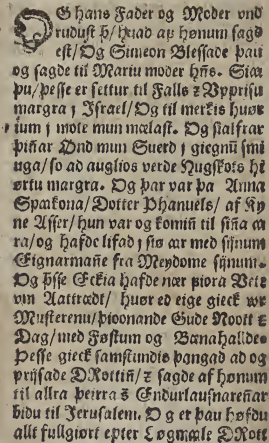 OG hans Fader og Moder vnd
rudust þ/ huad aff hønum sagd
est/ Og Simeon Blessade þau
og sagde til Mariu moder hñs. Siaa
þu/ þesse er settur til Falls ꝛ Vpprisu
margra j Jsrael/ Og til merkis huør
ium j mote mun mælast. Og sialfrar
þiñar Ønd mun Suerd j giegnū smi
uga/ so ad auglios verde Hugskots hi
ørtu margra. Og þar var þa Anna
Spaakona/ Dotter Phanuels/ af Ky
ne Asser/ hun var og komiñ til siña aa
ra/ og hafde lifad j siø aar med sijnum
Eignarmañe fra Meydome sijnum.
Og þsse Eckia hafde nær fiora Vetz
vm Aattrædt/ huør ed eige gieck wr
Musterenu/ þioonande Gude Noott ꝛ
Dag/ med Føstum og Bænahallde.
Þesse gieck samstundis þangad ad og
prijsade DRottiñ/ ꝛ sagde af hønum
til allra þeirra ꝛ Endurlausnareñar
bidu til Jerusalem. Og er þau høfdu
allt fullgiørt epter Løgmaale DRott